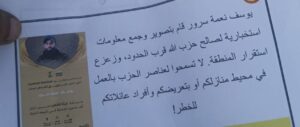 يوسف نعمة سرور قام بتصوير وجمع معلومات
استخبارية لصالح حزب الله قرب الحدود، وزعزع
استقرار المنطقة. لا تسمحوا لعناصر الحزب بالعمل
في محيط منازلكم أو بتعريضكم وأفراد عائلاتكم
للخطر!